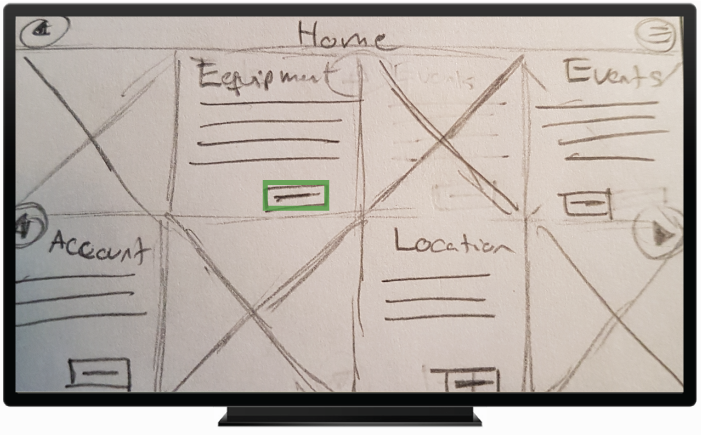 Home
Equipment
Events
Events
Account
Location